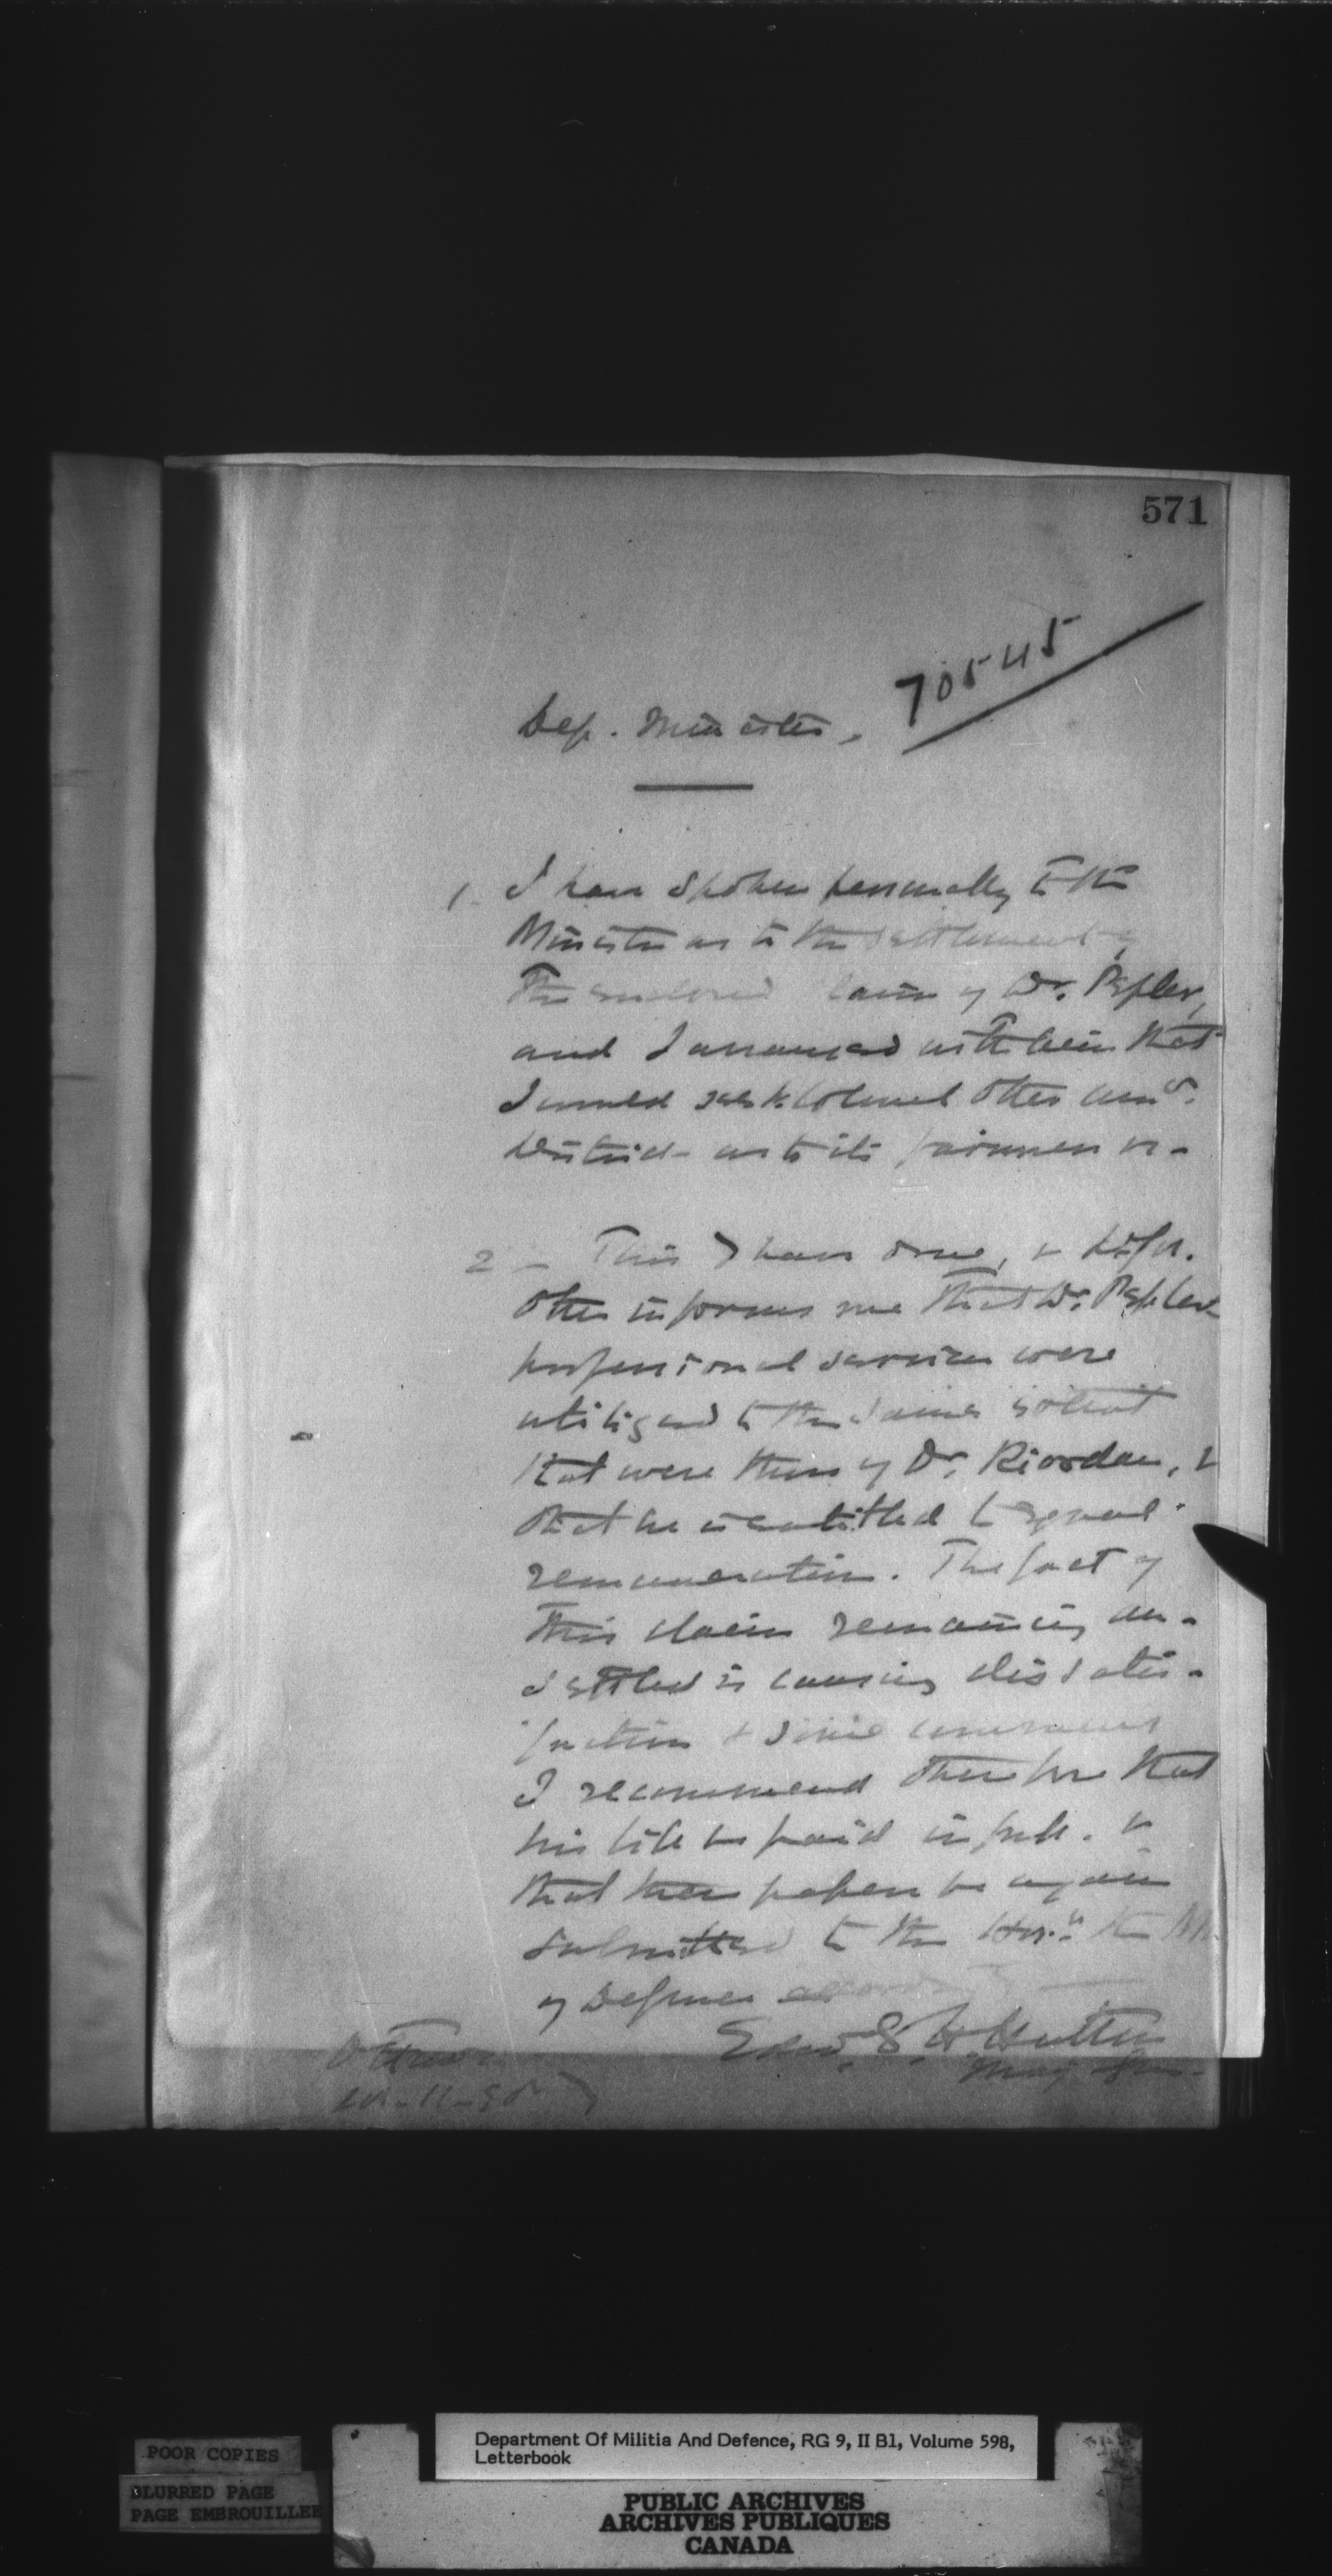 571
70545
Dep. Minister,
1. I have spoken personally to the
Minister as to the settlement of
the enclosed claim of Dr. Pepler,
and I arranged with him that
I would ask Colonel Otter
District as to its fairness
2 - This I have done, &
Otter informs me that Dr. Pepler
professional services were
utilized to the same extent
that were those of Dr. Riordan, &
that he is entitled to equal
remuneration. The fact of
this claim remaining un-
settled is causing dissatis-
faction & some comment
I recommend therefore that
his bill be paid in full. &
that these papers be again
submitted to the Hon. the
of Defence
Edw. T. H. Hutton
Maj Gen.
Ottawa
Department Of Militia And Defence, RG 9, II B1, Volume 598,
Letterbook
POOR COPIES
BLURRED PAGE
PAGE EMBROUILLEE
PUBLIC ARCHIVES
ARCHIVES PUBLIQUES
CANADA